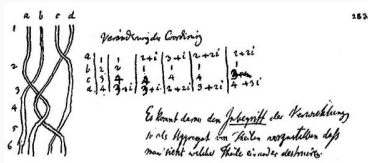 a b c d
1
2
3
4
5
6
Veränderung der Coordinirung
a | 1 | 1 | 2+i | 3+i | 2+2i | 2+2i
b | 2
c | 3 | 4 | 4 | 4
d | 4 | 3+i | 3+i | 2+2i | 3+2i | 4+3i
283
Es kommt darauf den Inbegriff der Verwicklung
so als Aggregat von Theilen vorzustellen daß
man sieht welche Theile einander destruiren